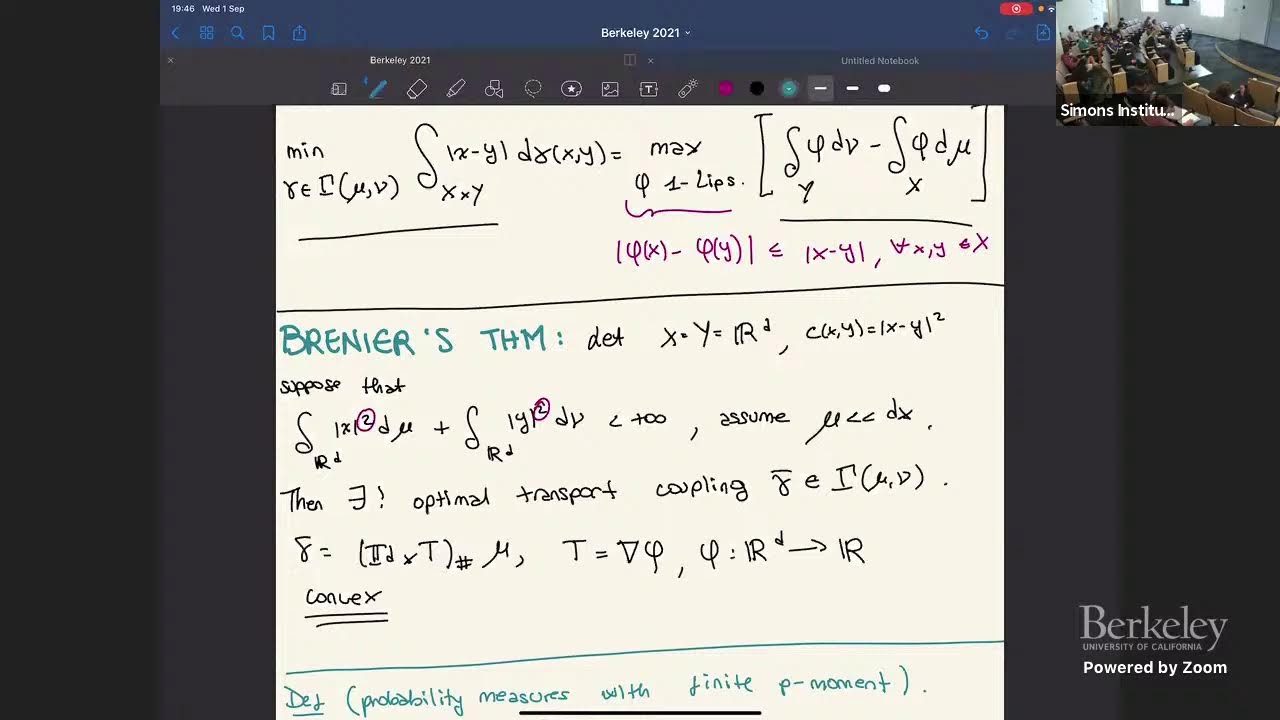 19:46 Wed 1 Sep
Berkeley 2021
Berkeley 2021
Untitled Notebook
Simons Institu...
min γ∈Γ(μ,ν) ∫_{X×Y} |x-y| dγ(x,y) = max φ 1-Lips. [∫_Y φdν - ∫_X φdμ]
|φ(x) - φ(y)| ≤ |x-y|, ∀x,y ∈ X
BRENIER'S THM: det X=Y=ℝ^d, c(x,y)=|x-y|²
suppose that
∫_{ℝ^d} |x|² dμ + ∫_{ℝ^d} |y|² dν < +∞, assume μ << dx.
Then ∃! optimal transport coupling γ̄ ∈ Γ(μ,ν).
γ = (Id × T)_# μ, T = ∇φ, φ: ℝ^d → ℝ
convex
Def (probability measures with finite p-moment).
Berkeley
UNIVERSITY OF CALIFORNIA
Powered by Zoom